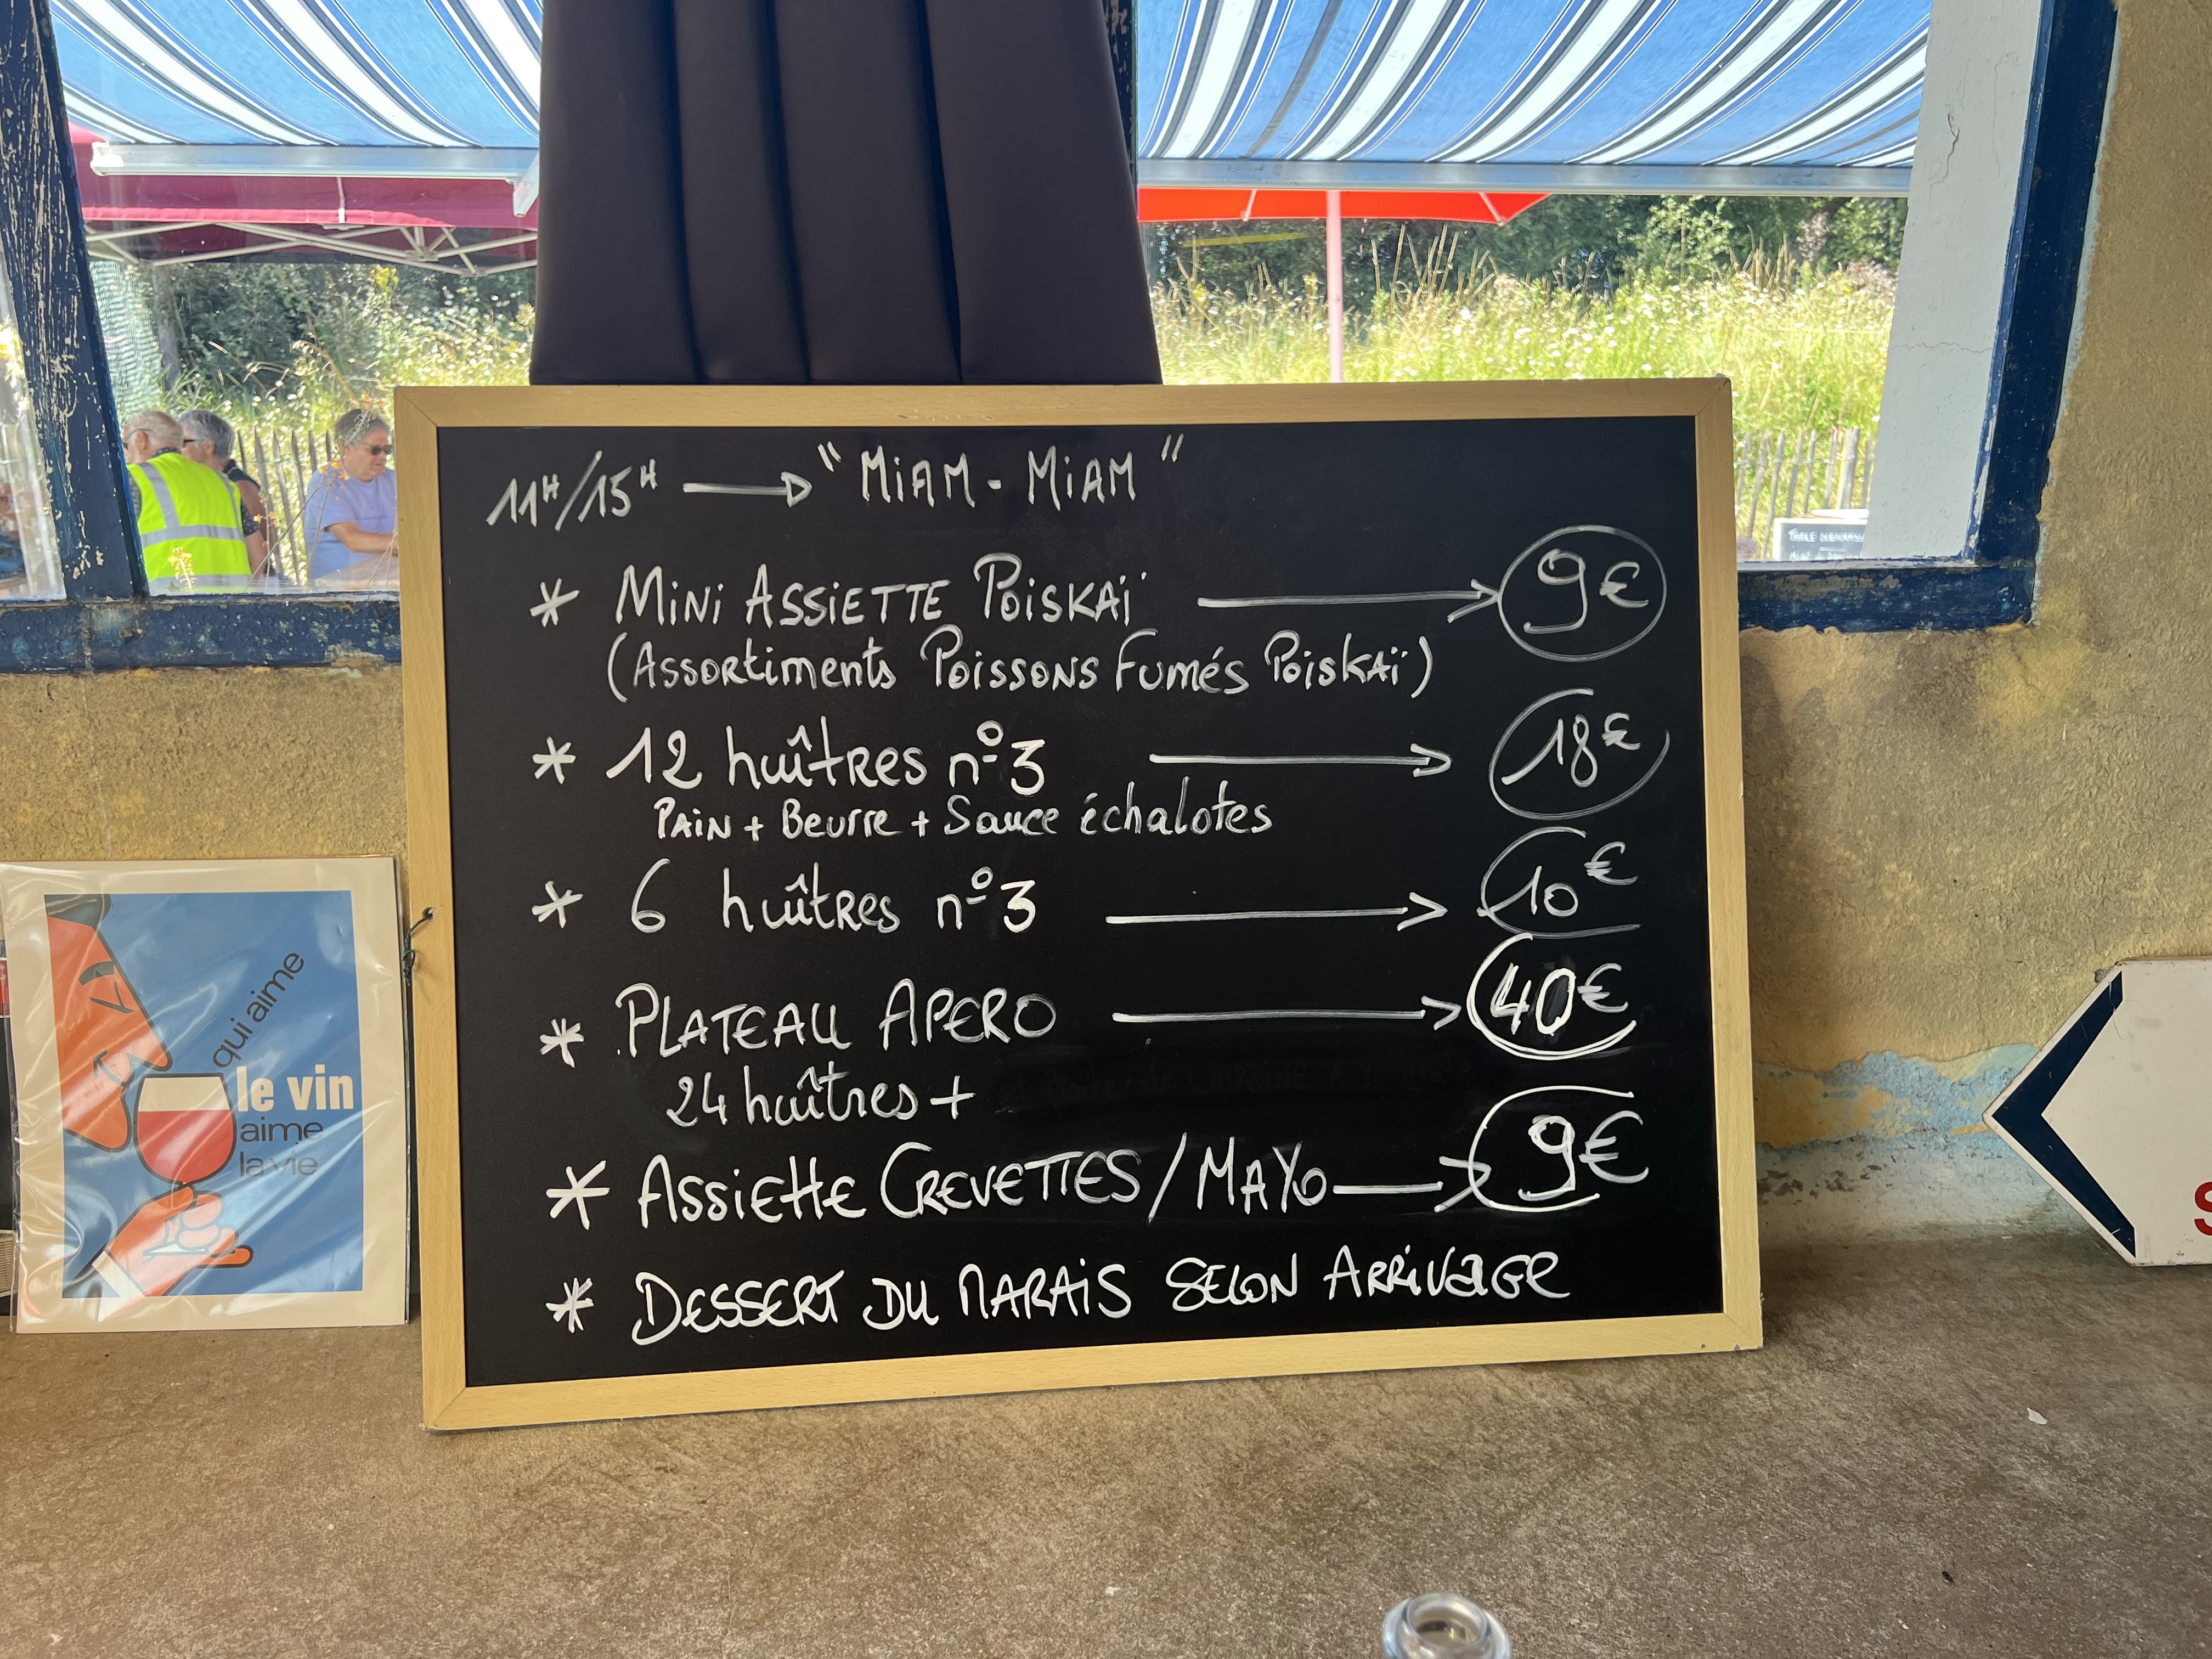 11H/15H → "MiAM - MiAM"
* MiNi ASSiETTE POiSKAï → 9€
(Assortiments Poissons Fumés Poiskaï)
* 12 huîtres n°3 → 18€
Pain + Beurre + Sauce échalotes
* 6 huîtres n°3 → 10€
* PLATEAU APERO → 40€
24 huîtres +
* Assiette CREVETTES / MAYO → 9€
* DESSERT DU MARAIS SELON ARRIVAGE
qui aime
le vin
aime
la vie